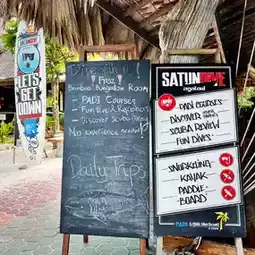 LET'S
GET
DOWN
Dive
Free
Bamboo Bungalow Room
- PADI Courses
- Fun Dive
- Discover Scuba Diving
No experience needed!
Daily Trips
SATUNDIVE
PADI COURSES
DISCOVER
SCUBA REVIEW
FUN DIVES
SNORKELING
KAYAK
PADDLE-
BOARD
PADI